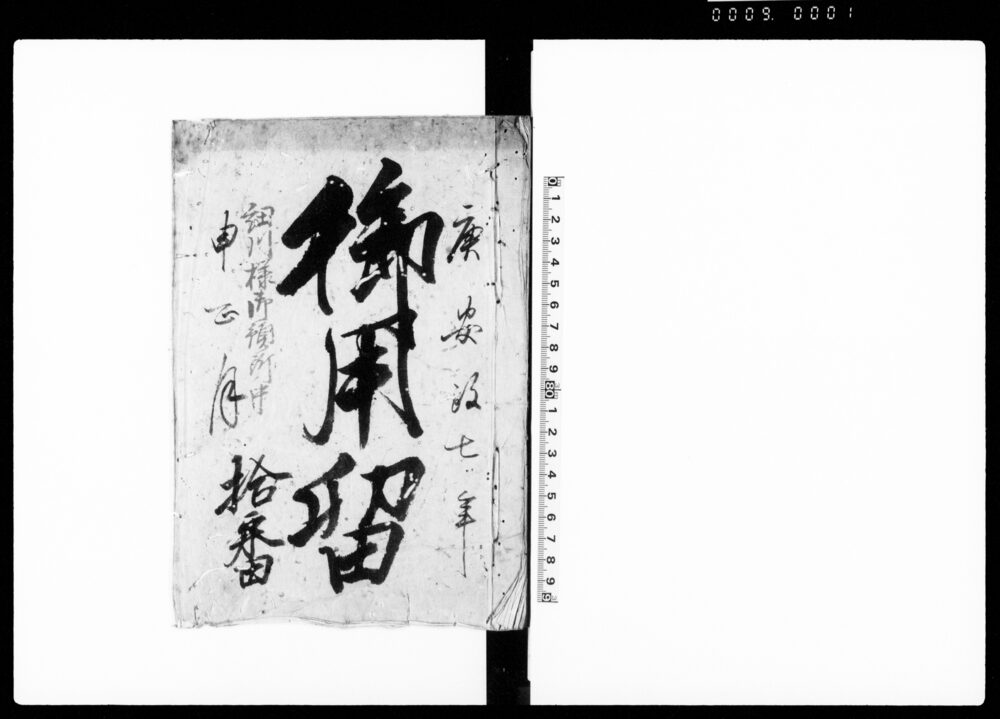 0009. 0001
庚 安政七年
御用留
細川様御預所中
申正月
拾番
0 1 2 3 4 5 6 7 8 9 80 1 2 3 4 5 6 7 8 9